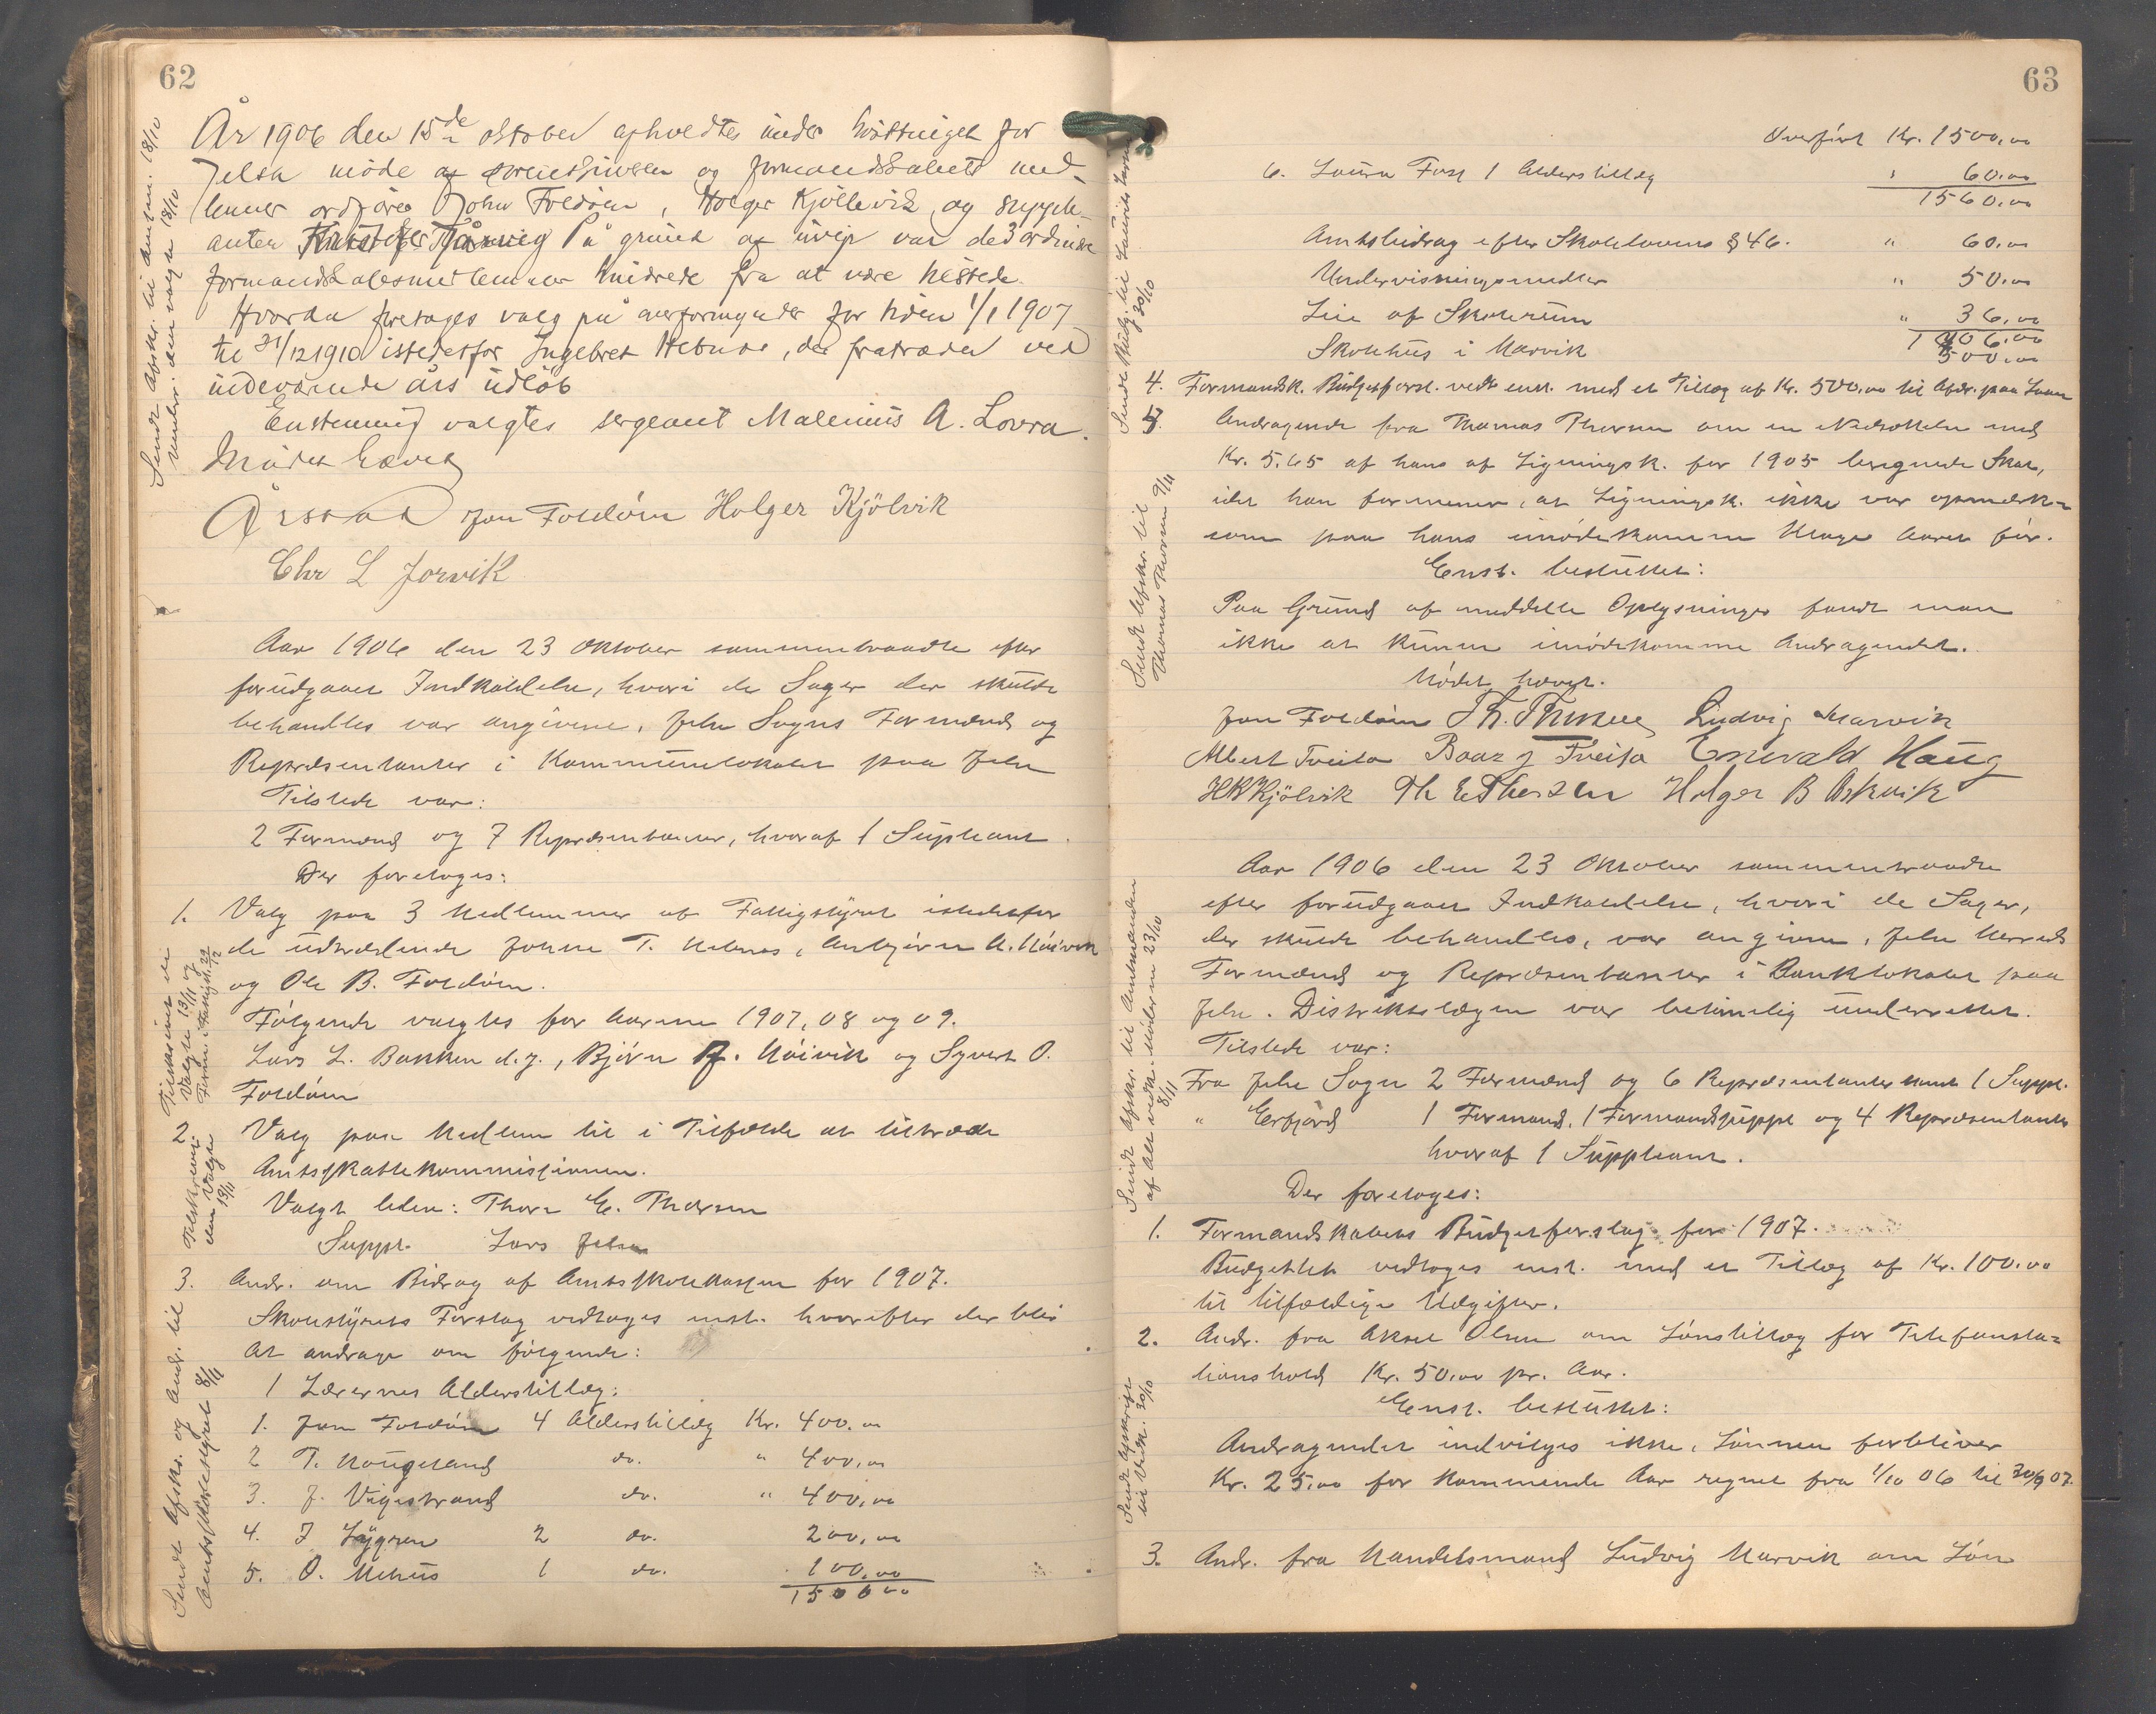 62
År 1906 den 15de oktober afholdtes under hösttinget for
Jelsa möde af sorenskriveren og formandskabets med-
lemmer ordförer John Foldöen, Holger Kjöllevik og supple-
anten På grund af uveir var de 3 ordinære
formandskabesmedlemmer hindrede fra at være tilstede.
Hvorda foretoges valg på overformynder for tiden 1/1 1907
til 31/12 1910 istedetfor Ingebret Hebnes, der fratræder ved
indeværende års udløb
Enstemmig valgtes sergeant Malenius A. Lovra.
Mödet hævet
Årstad Jon Foldöen Holger Kjölvik
Chr L Jorvik
Sendt Afskr. til Amtm. 18/10
Underr. den valgte 18/10
Aar 1906 den 23 Oktober sammentraadte efter
forudgaaet Indkaldelse, hvori de Sager der skulde
behandles var angivne, Jelse Sogns Formænd og
Repræsentanter i Kommunelokalet paa Jelse
Tilstede var:
2 Formænd og 7 Repræsentanter, hvoraf 1 Supleant.
Der foretoges:
1. Valg paa 3 Medlemmer af Fattigstyret istedetfor
de udtrædende Johne T. Hebnes, Anbjörn A. Höivik
og Ole B. Foldöen.
Følgende valgtes for Aarene 1907, 08 og 09.
Lars L. Bakken d.y., Björn B. Höivik og Syvert O.
Foldöen
Tilskrevet de
Valgte 13/11 og
Form. i Fattigst. 29/12
2. Valg paa Medlem til i Tilfælde at tiltræde
Amtsskattekommissionen.
Valgt bleve: Thore E. Thorsen
Suppl. Lars Jelsa
Tilskrevet
den Valgte
13/11
3. Andr. om Bidrag af Amtsskolekassen for 1907.
Skolestyrets Forslag vedtoges enst. hvorefter der blir
At andrage om følgende:
1 Lærernes Alderstillæg:
1. Jon Foldöen 4 Alderstillæg Kr. 400.00
2 T. Haugeland do. " 400,00
3. J. Vigestrand do. " 400,00
4. J Lygren 2 do. 200,00
5. O. Mehus 1 do. 100,00
1500 00
Sendt Afskr. og Andr. til
Amtsskolestyret 8/11
63
Overført Kr. 1500,00
6. Laura Foss 1 Alderstillæg " 60.00
1560.00
Amtsbidrag efter Skolelovens § 46. " 60.00
Undervisningsmidler " 50.00
Leie af Skolerum " 36,00
1706,00
Skolehus i Marvik 500.00
4. Formandsk. Budgetforsl. vedt. enst. med et Tillæg af Kr. 500,00 til Afdr. paa Laan
5. Andragende fra Thomas Thorsen om en Nedsættelse med
Kr. 5.65 af hans af Ligningsk. for 1905 beregnede Skat,
idet han formener, at Ligningsk. ikke var opmærk-
som paa hans imødekomne Klage Aaret før.
Enst. besluttet:
Paa Grund af meddelte Oplysninger fandt man
ikke at kunne imødekomme Andragendet.
Mødet hævet.
Jon Foldöen Th. Ludvig Marvik
Albert Tveita Baar J Tveita Enevald Haug
HK Kjölvik Th E Thorsen Holger B Askvik
Sendt Afskr. til
Thomas Thorsen 9/11
Aar 1906 den 23 Oktober sammentraadte
efter forudgaaet Indkaldelse, hvori de Sager,
der skulde behandles, var angivne, Jelse Herreds
Formænd og Repræsentanter i Banklokalet paa
Jelse. Distriktslægen var betimelig underrettet.
Tilstede var:
Fra Jelse Sogn 2 Formænd og 6 Repræsentanter samt 1 Suppl.
" Erfjord 1 Formand, 1 Formandssuppl og 4 Repræsentanter
hvoraf 1 Suppleant.
Der foretoges:
1. Formandskabets Budgetforslag for 1907.
Budgettet vedtoges enst. med et Tillæg af Kr. 100.00
til tilfældige Udgifter.
Sendt Afskr. til Amtmanden
8/11
2. Andr. fra Aksel Olsen om Lønstillæg for Telefonsta=
tionshold Kr. 50.00 pr. Aar.
Enst. besluttet:
Andragendet indvilges ikke, Lønnen forbliver
Kr. 25.00 for kommende Aar regnet fra 1/10 06 til 30/9 07.
Sendt Afskrift
til Vedk. 30/10
3. Andr. fra Handelsmand Ludvig Marvik om Løn